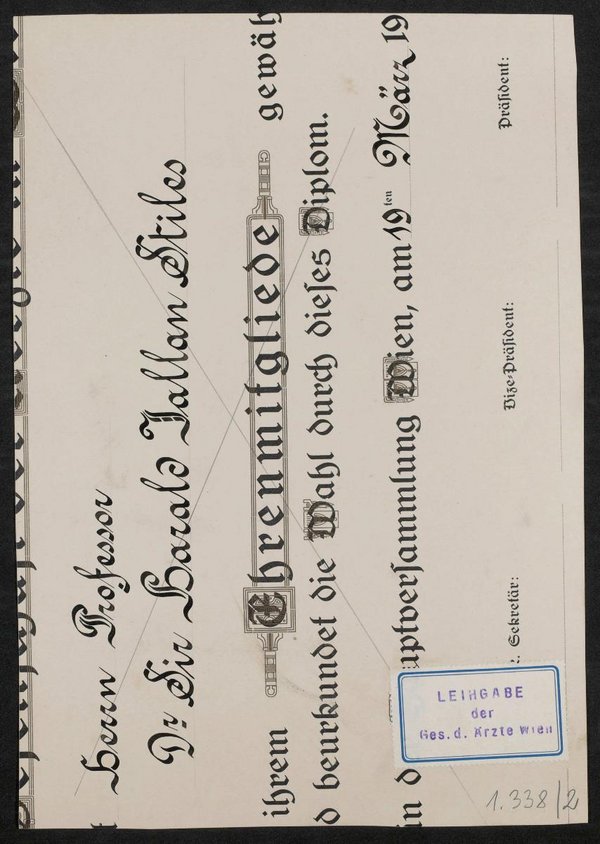 Herrn Professor
Dr Sir Harald Jallan Stiles
ihrem Ehrenmitgliede gewäh
d beurkundet die Wahl durch dieses Diplom.
in d uptversammlung Wien, am 19ten März 19
Sekretär: Vize-Präsident: Präsident:
LEIHGABE
der
Ges. d. Ärzte Wien
1.338/2